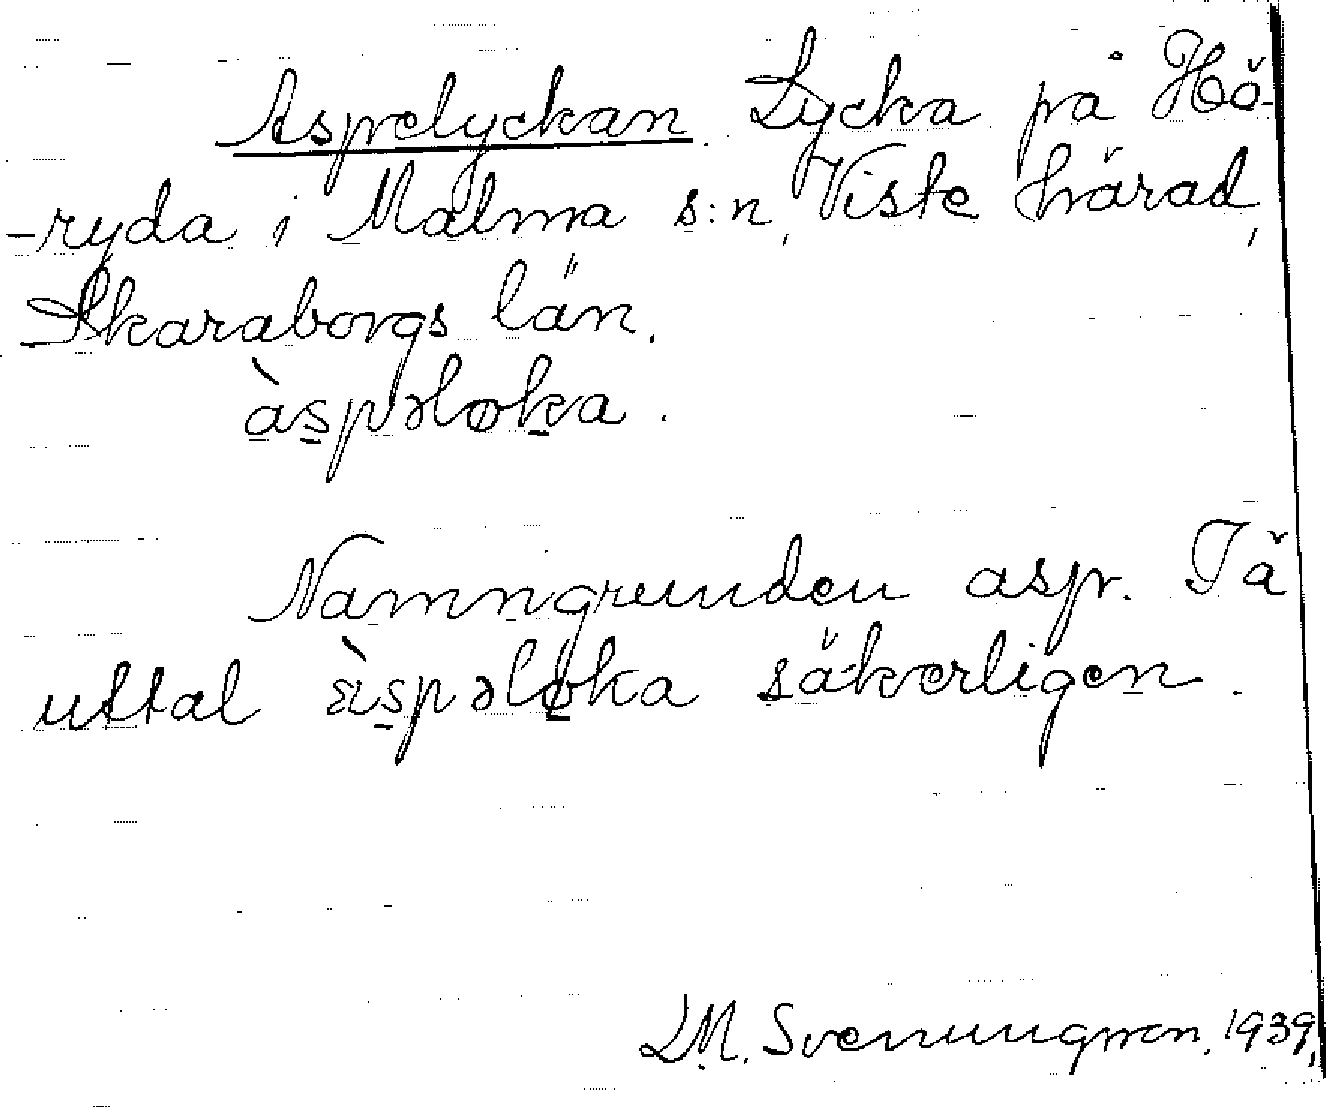 Aspelyckan. Lycka på Hö-
-ryda i Malma s:n, Viste härad,
Skaraborgs län.
àspəloka.
Namngrunden asp. Tä
uttal àspəløka säkerligen.
L.M. Svenungsson. 1939.